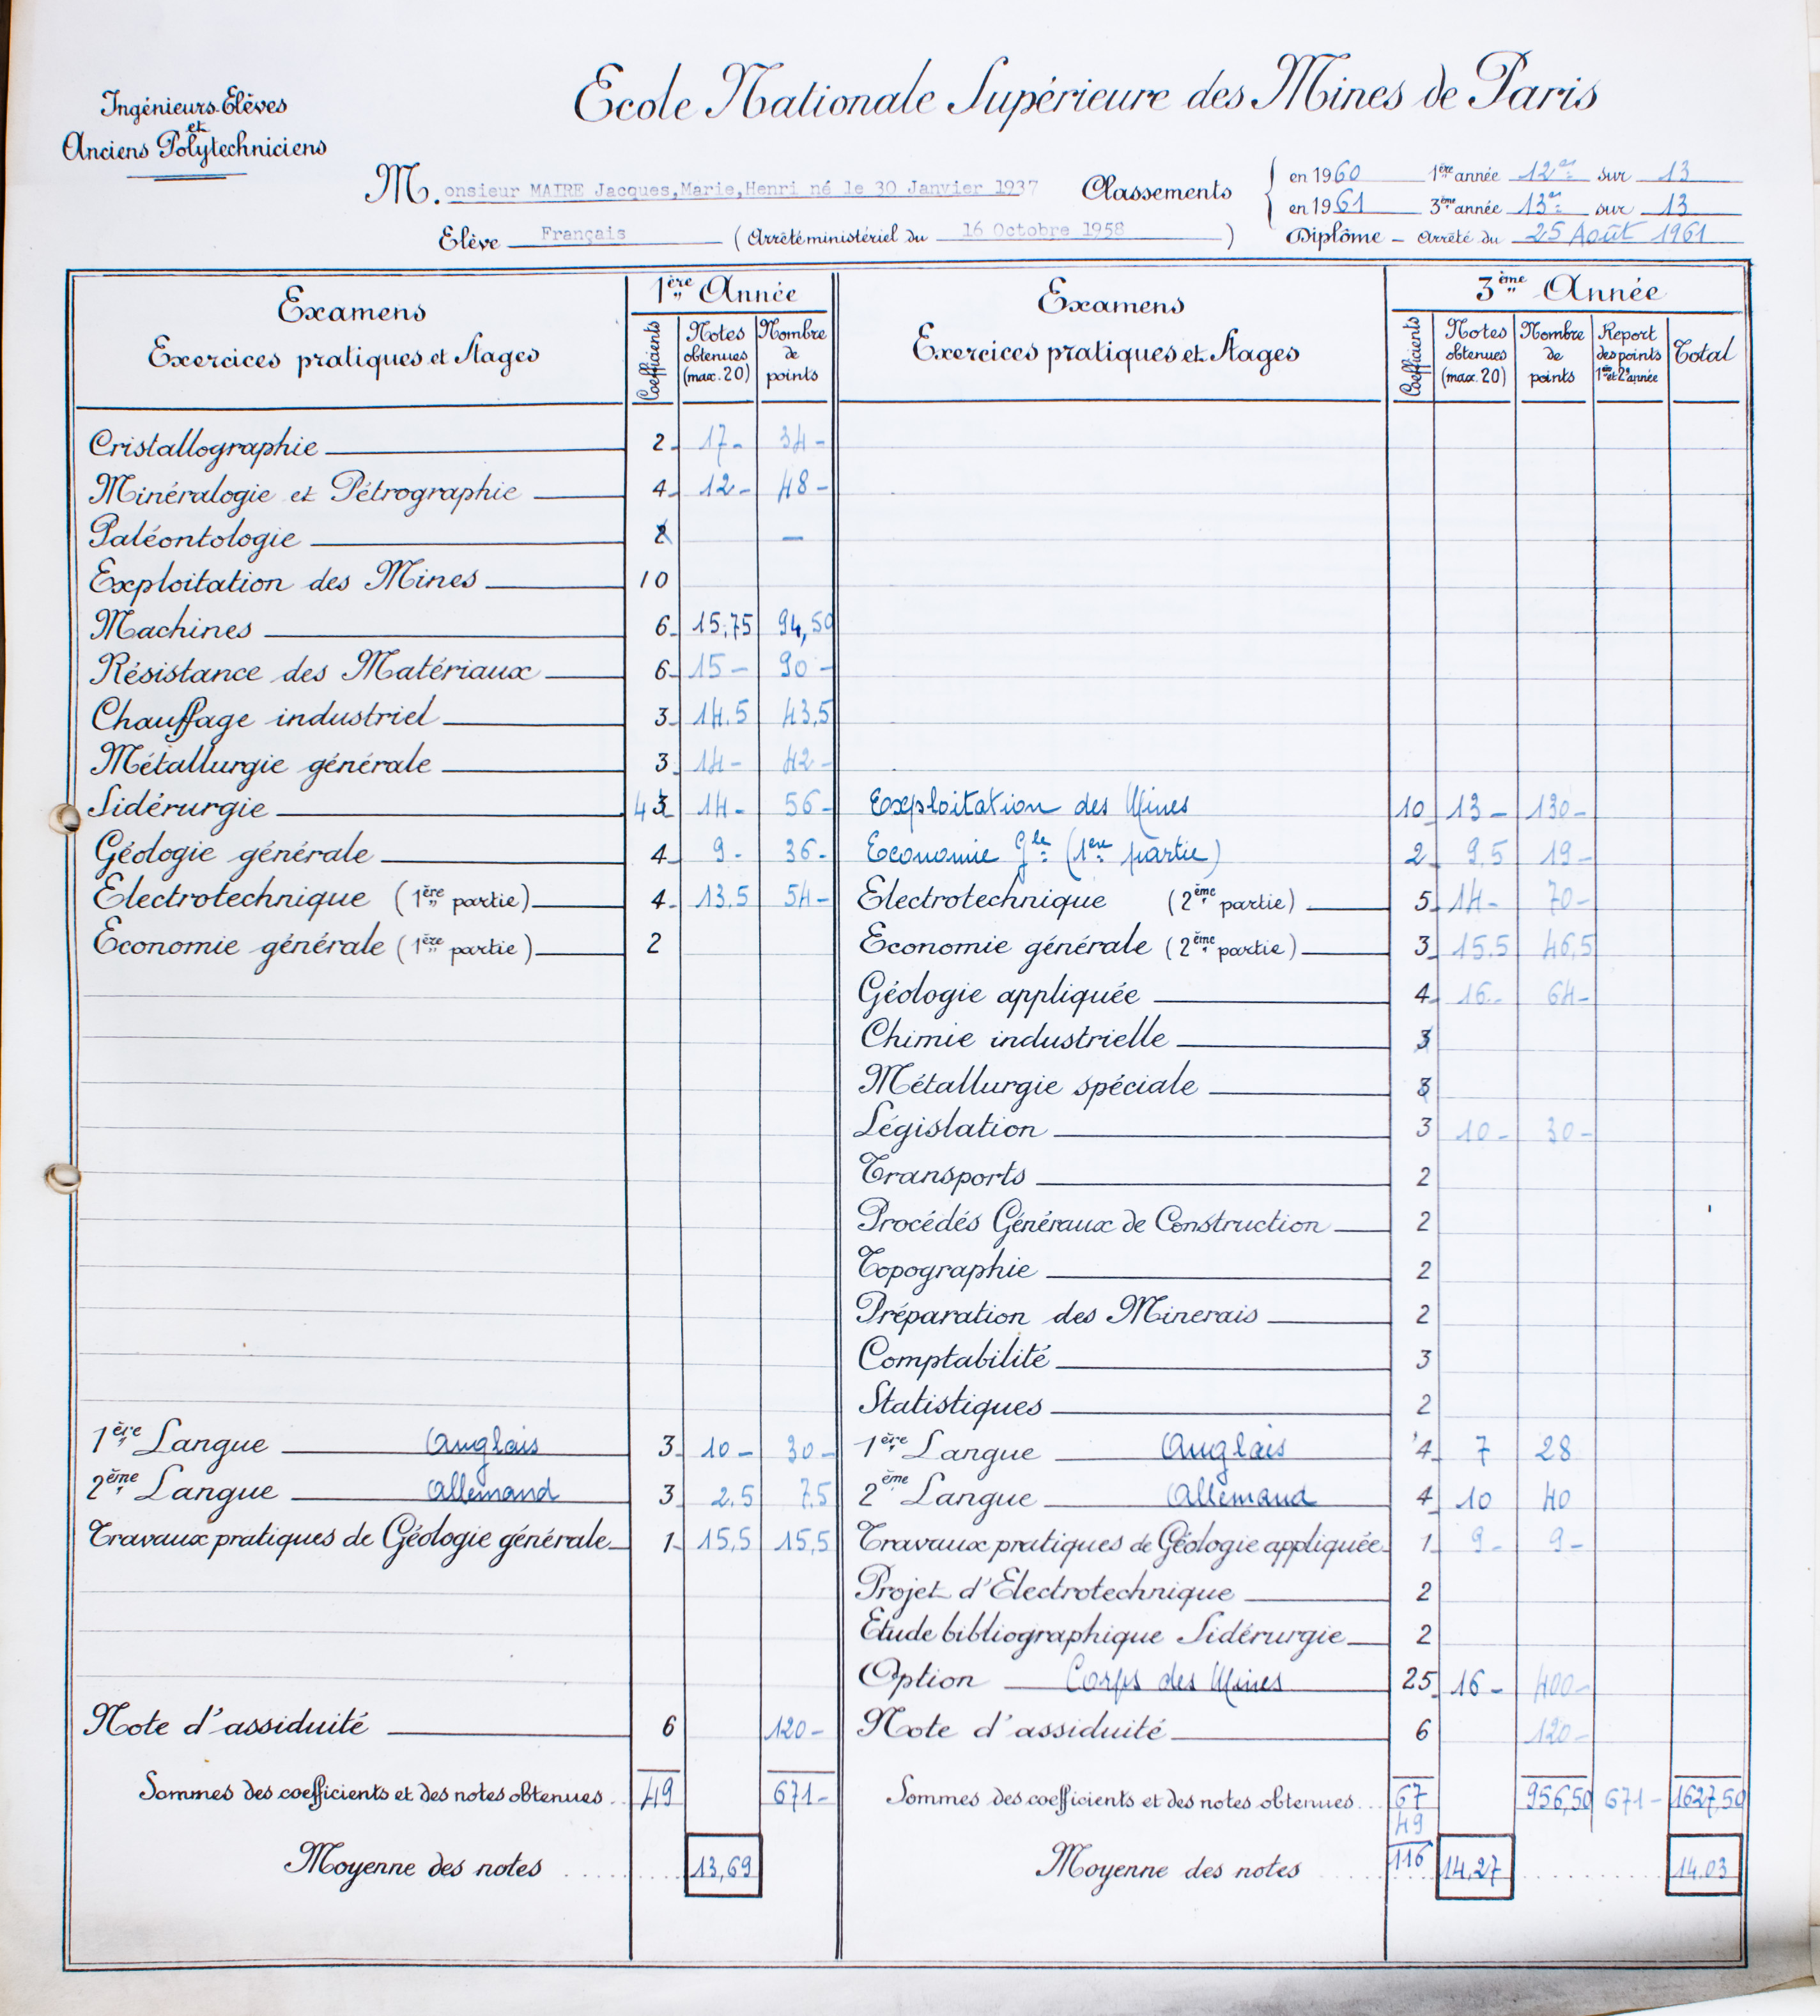 Ingénieurs-Elèves
et
Anciens Polytechniciens
Ecole Nationale Supérieure des Mines de Paris
M. onsieur MAIRE Jacques,Marie,Henri né le 30 Janvier 1937
Elève Français (Arrêté ministériel du 16 Octobre 1958)
Classements
en 1960 1ère année 12e sur 13
en 1961 3ème année 13e sur 13
Diplôme - Arrêté du 25 Août 1961
Examens
Exercices pratiques et Stages
1ère Année
Coefficients
Notes obtenues (max. 20)
Nombre de points
Examens
Exercices pratiques et Stages
3ème Année
Coefficients
Notes obtenues (max. 20)
Nombre de points
Report des points 1ère et 2e année
Total
Cristallographie 2 17- 34-
Minéralogie et Pétrographie 4 12- 48-
Paléontologie 2 -
Exploitation des Mines 10
Machines 6 15,75 94,50
Résistance des Matériaux 6 15- 90-
Chauffage industriel 3 14.5 43,5
Métallurgie générale 3 14- 42-
Sidérurgie 4 3 14- 56- Exploitation des Mines 10 13- 130-
Géologie générale 4 9- 36- Economie Gle (1ère partie) 2 9,5 19-
Electrotechnique (1ère partie) 4 13.5 54- Electrotechnique (2ème partie) 5 14- 70-
Economie générale (1ère partie) 2 Economie générale (2ème partie) 3 15.5 46,5
Géologie appliquée 4 16- 64-
Chimie industrielle 3
Métallurgie spéciale 3
Législation 3 10- 30-
Transports 2
Procédés Généraux de Construction 2
Topographie 2
Préparation des Minerais 2
Comptabilité 3
Statistiques 2
1ère Langue Anglais 3 10- 30- 1ère Langue Anglais 4 7 28
2ème Langue Allemand 3 2.5 7.5 2ème Langue Allemand 4 10 40
Travaux pratiques de Géologie générale 1 15,5 15,5 Travaux pratiques de Géologie appliquée 1 9- 9-
Projet d'Electrotechnique 2
Etude bibliographique Sidérurgie 2
Option Corps des Mines 25 16- 400-
Note d'assiduité 6 120- Note d'assiduité 6 120-
Sommes des coefficients et des notes obtenues 49 671- Sommes des coefficients et des notes obtenues 67 956,50 671- 1627,50
49
Moyenne des notes 13,69 Moyenne des notes 116 14,27 14.03